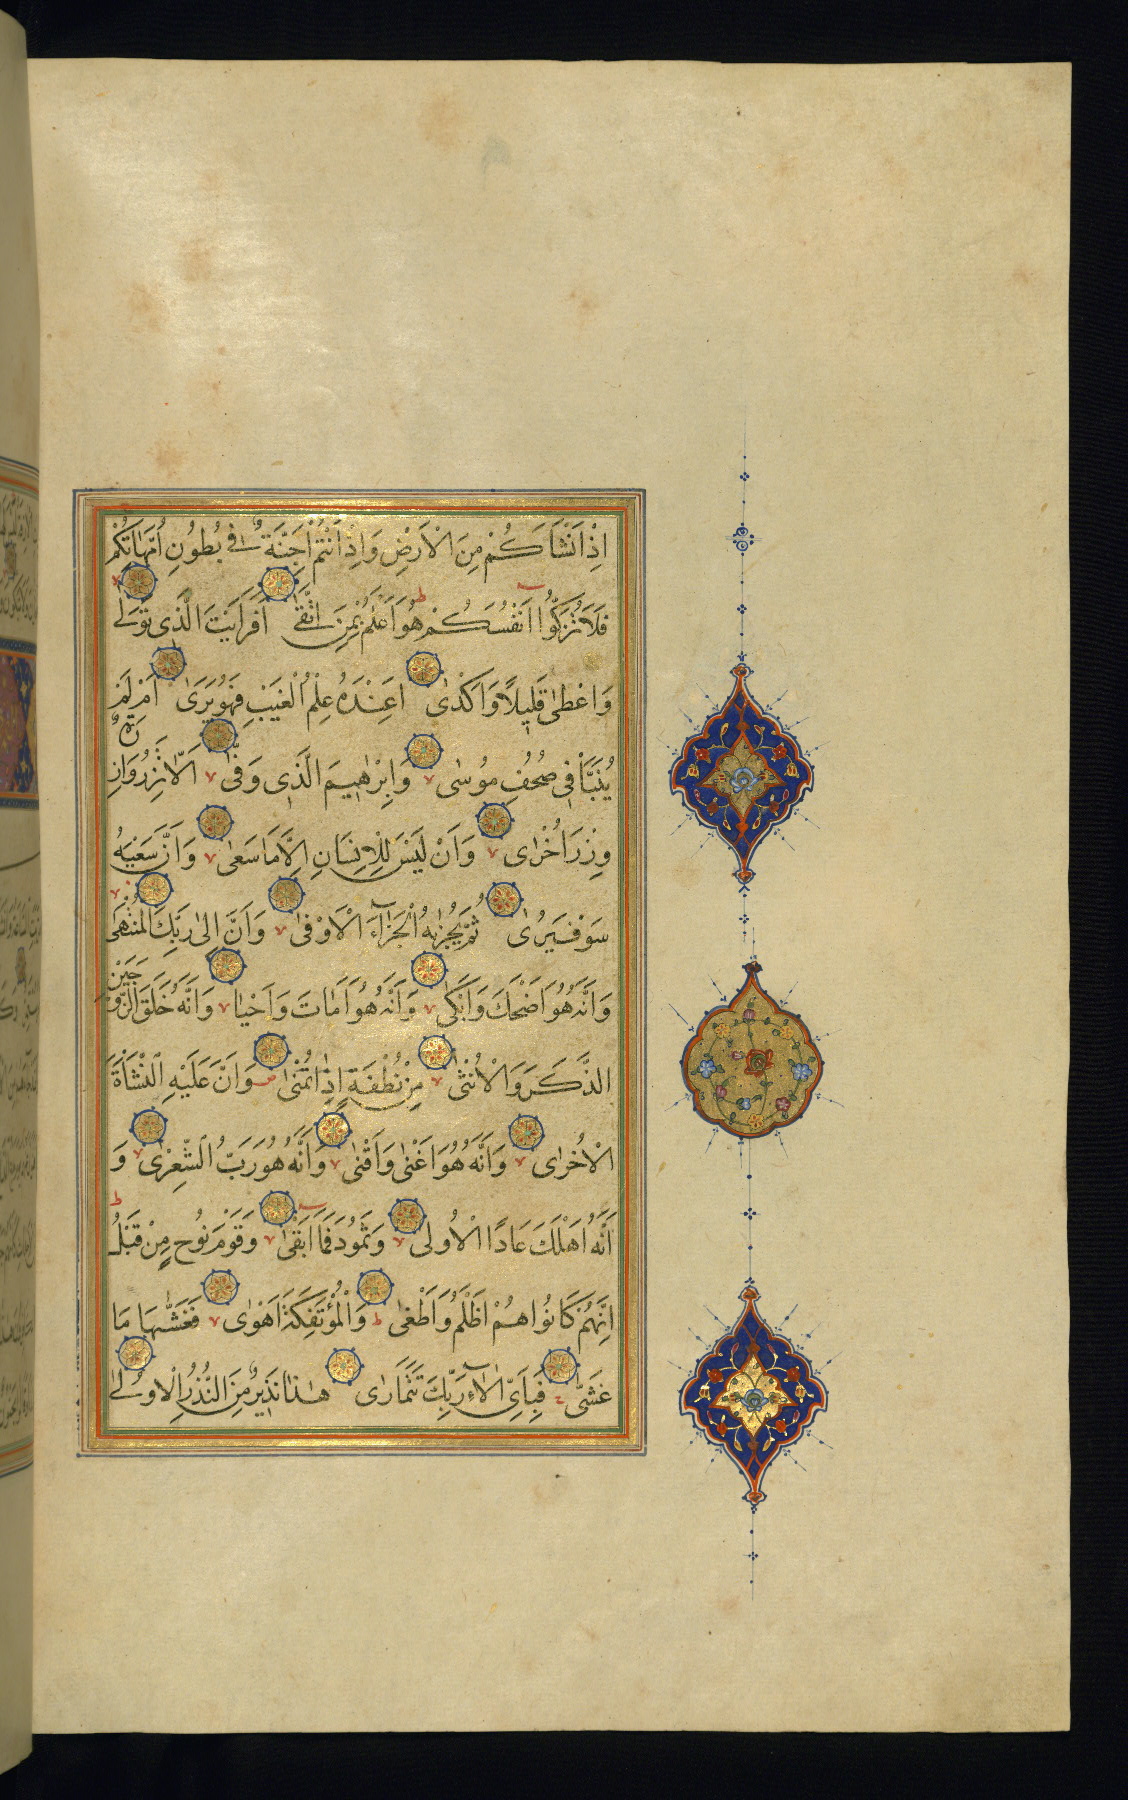 اِذْ اَنْشَاَكُمْ مِنَ الْاَرْضِ وَاِذْ اَنْتُمْ اَجِنَّةٌ فِي بُطُونِ اُمَّهَاتِكُمْ
فَلَا تُزَكُّوا اَنْفُسَكُمْ هُوَ اَعْلَمُ بِمَنِ اتَّقٰى اَفَرَاَيْتَ الَّذِى تَوَلّٰى
وَاَعْطٰى قَلِيلًا وَاَكْدٰى اَعِنْدَهُ عِلْمُ الْغَيْبِ فَهُوَ يَرٰى اَمْ لَمْ
يُنَبَّأْ فِى صُحُفِ مُوسٰى وَاِبْرٰهِيمَ الَّذِى وَفّٰى اَلَّا تَزِرُ وَازِرَةٌ
وِزْرَ اُخْرٰى وَاَنْ لَيْسَ لِلْاِنْسَانِ اِلَّا مَا سَعٰى وَاَنَّ سَعْيَهُ
سَوْفَ يُرٰى ثُمَّ يُجْزٰيهُ الْجَزَآءَ الْاَوْفٰى وَاَنَّ اِلٰى رَبِّكَ الْمُنْتَهٰى
وَاَنَّهُ هُوَ اَضْحَكَ وَاَبْكٰى وَاَنَّهُ هُوَ اَمَاتَ وَاَحْيَا وَاَنَّهُ خَلَقَ الزَّوْجَيْنِ
الذَّكَرَ وَالْاُنْثٰى مِنْ نُطْفَةٍ اِذَا تُمْنٰى وَاَنَّ عَلَيْهِ النَّشْاَةَ
الْاُخْرٰى وَاَنَّهُ هُوَ اَغْنٰى وَاَقْنٰى وَاَنَّهُ هُوَ رَبُّ الشِّعْرٰى وَ
اَنَّهُ اَهْلَكَ عَادًا الْاُولٰى وَثَمُودَ فَمَا اَبْقٰى وَقَوْمَ نُوحٍ مِنْ قَبْلُ
اِنَّهُمْ كَانُوا هُمْ اَظْلَمَ وَاَطْغٰى وَالْمُؤْتَفِكَةَ اَهْوٰى فَغَشّٰيهَا مَا
غَشّٰى فَبِاَىِّ اٰلَآءِ رَبِّكَ تَتَمَارٰى هٰذَا نَذِيرٌ مِنَ النُّذُرِ الْاُولٰى